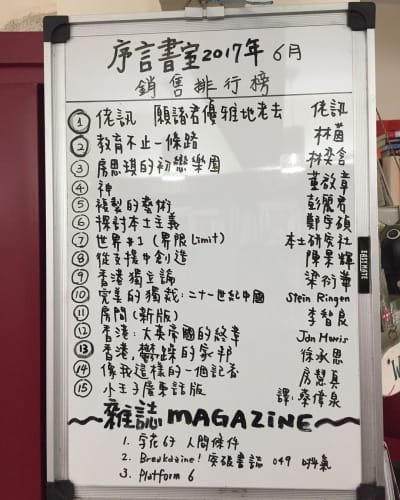 序言書室2017年 6月
銷售排行榜
① 佬訊 願諸君優雅地老去 佬訊
② 教育不止一條路 林茵
③ 房思琪的初戀樂園 林奕含
④ 神 董啟章
⑤ 複製的藝術 彭麗君
⑥ 探討本土主義 鄭宇碩
⑦ 世界#1 (界限Limit) 本土研究社
⑧ 從支援中創造 陳景輝
⑨ 香港獨立論 梁衍華
⑩ 完美的獨裁:二十一世紀中國 Stein Ringen
⑪ 房間 (新版) 李智良
⑫ 香港:大英帝國的終章 Jan Morris
⑬ 香港,鬱躁的家邦 徐承恩
⑭ 像我這樣的一個記者 房慧真
⑮ 小王子廣東話版 譯:蔡偉泉
~雜誌 MAGAZINE~
1. 字花67 人間條件
2. Breakazine! 突破書誌 049
3. Platform 6